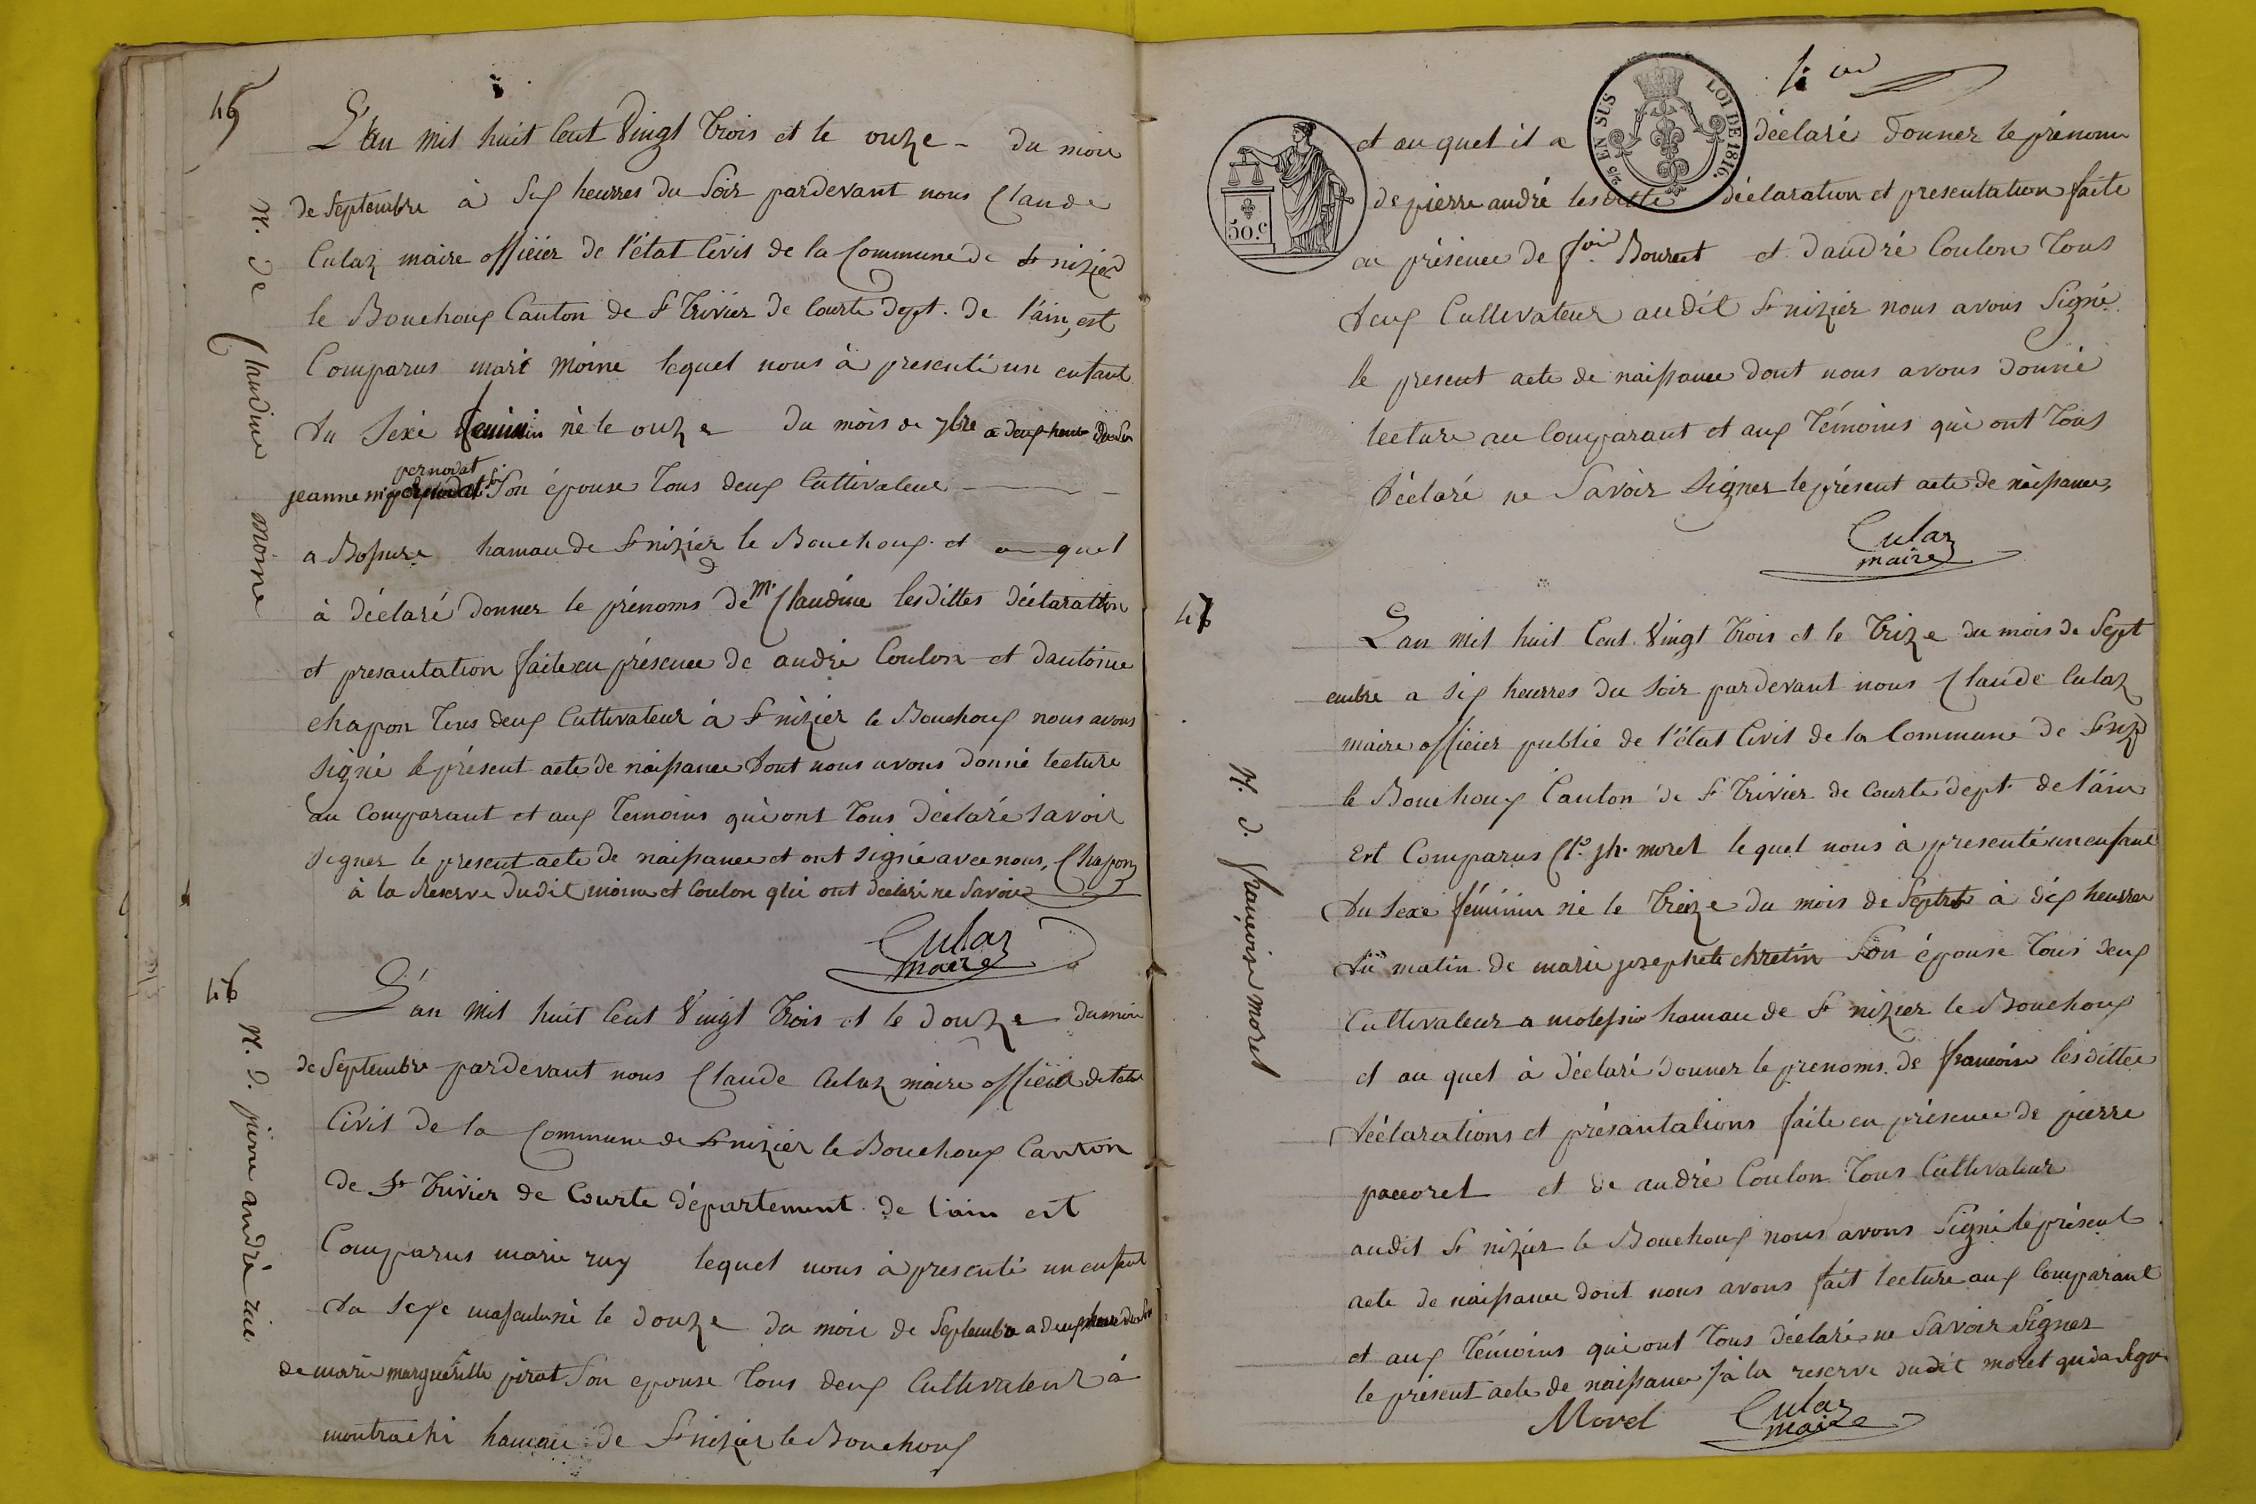 45
N. de Claudine moine
L'an mil huit Cent Vingt trois et le onze - du mois
de Septembre à Six heurres du Soir pardevant nous Claude
Culaz maire officier de l'état Civil de la Commune de St nizier
le Bouchoux Canton de St Trivier de Courte dept. de l'ain, est
Comparus mari Moine lequel nous à presenté un enfant
du Sexe feminin né le onze du mois de 7bre a deux heure du Soir
pernodat
jeanne son épouse Tous deux Cultivateur
a Bossure hamau de St nizier le Bouchoux et au quel
à déclaré donner le prénoms de Mie Claudine lesdittes déclaration
et presantation faite en présence de andré Coulon et dantoine
chapon Tous deux Cultivateur à St nizier le Bouchoux nous avons
signé le présent acte de naissance dont nous avons donné lecture
au Comparant et aux Temoins qui ont Tous déclaré savoir
signer le present acte de naissance et ont signé avec nous, Chapon
à la Reserve dudit moine et Coulon qui ont declaré ne Savoir
Culaz
maire
46
N. d. pierre andré
L'an mil huit Cent Vingt Trois et le douze du mois
de Septembre pardevant nous Claude Culaz maire officier detat
Civil de la Commune de St nizier le Bouchoux Canton
de St Trivier de Courte département de l'ain est
Comparus marie ruy lequel nous à presenté un enfant
du Sexe masculin né le douze du mois de Septembre a deux heure du Soir
de marie margueritte pirat Son epouse Tous deux Cultivateur à
montrachi hamau de St nizier le Bouchoux
25 EN SUS LOI DE 1816.
50.c
et au quel il a déclaré donner le prénom
de pierre andré lesditte déclaration et presentation faite
en présence de Bourcet et dandré Coulon Tous
deux Cultivateur audit St nizier nous avons Signé
le present acte de naissance dont nous avons donné
lecture au Comparant et aux Témoins qui ont Tous
déclaré ne Savoir signer le présent acte de naissance,
Culaz
maire
47
N. d. françoise moret
L'an mil huit Cent Vingt Trois et le Trize du mois de Sept
embre a six heurres du soir pardevant nous Claude Culaz
maire officier public de l'état Civil de la Commune de St niz
le Bouchoux Canton de St Trivier de Courte dept. de l'ain
Est Comparus Cl. jh. moret lequel nous à presenté un enfant
du Sexe féminin né le Treize du mois de Septre à dix heurres
du matin de marie josephete chretin Son épouse Tous deux
Cultivateur a molessin hamau de St nizier le Bouchoux
et au quel à déclaré donner le prenoms de françoise lesdittes
déclarations et présantations faite en présence de pierre
paccoret et de andré Coulon Tous Cultivateur
audit St nizier le Bouchoux nous avons Signé le présent
acte de naissance dont nous avons fait lecture aux Comparant
et aux Témoins qui ont Tous déclaré ne Savoir Signer
le présent acte de naissance à la reserve dudit moret qui a signé
Morel
Culaz
maire